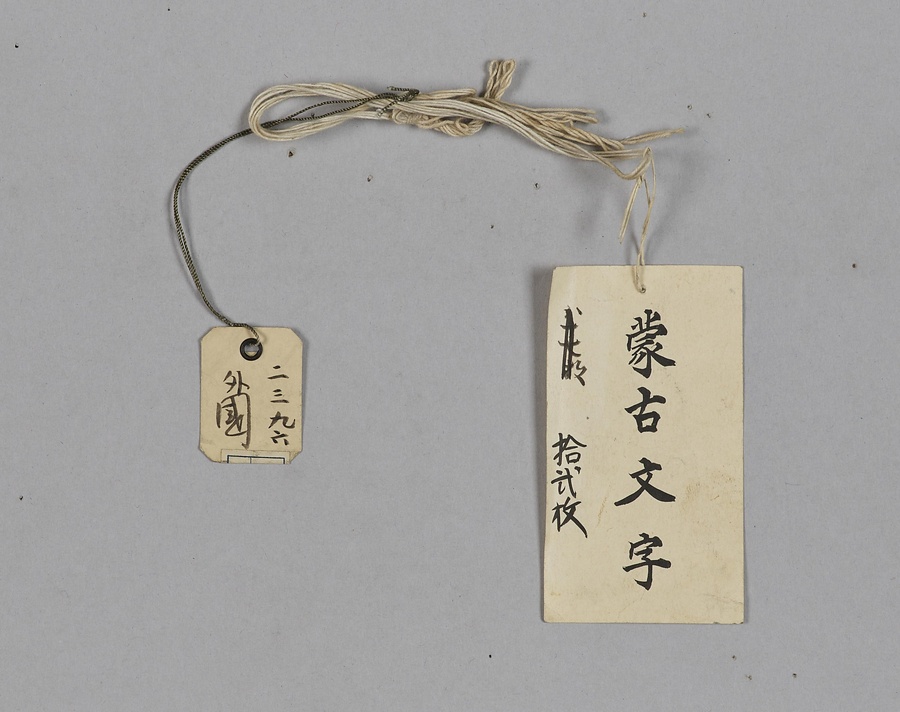 二三九六
外國
蒙古文字
拾弐枚